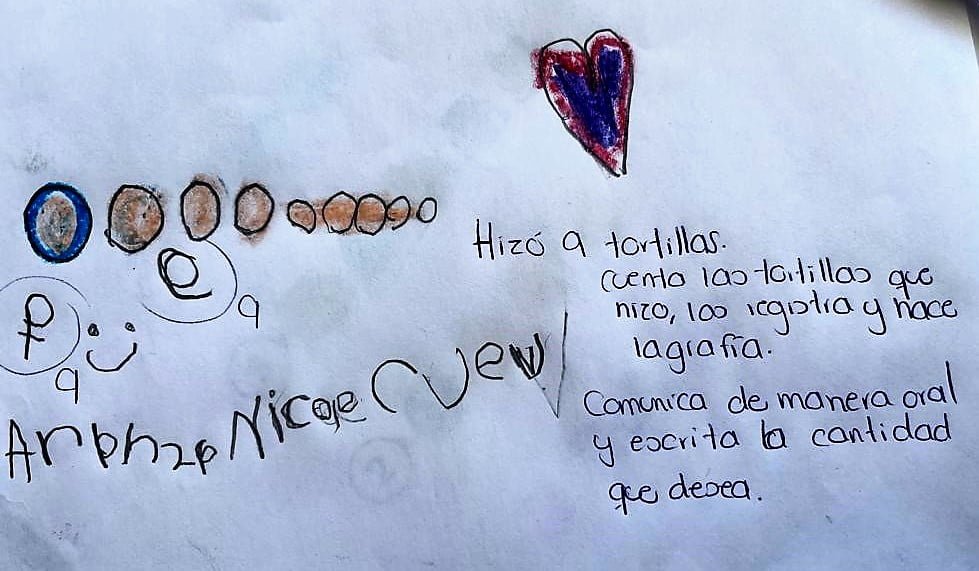 Hizó 9 tortillas.
cuenta las tortillas que
hizo, las registra y hace
la grafía.
Comunica de manera oral
y escrita la cantidad
que desea.
9
9
Nicole